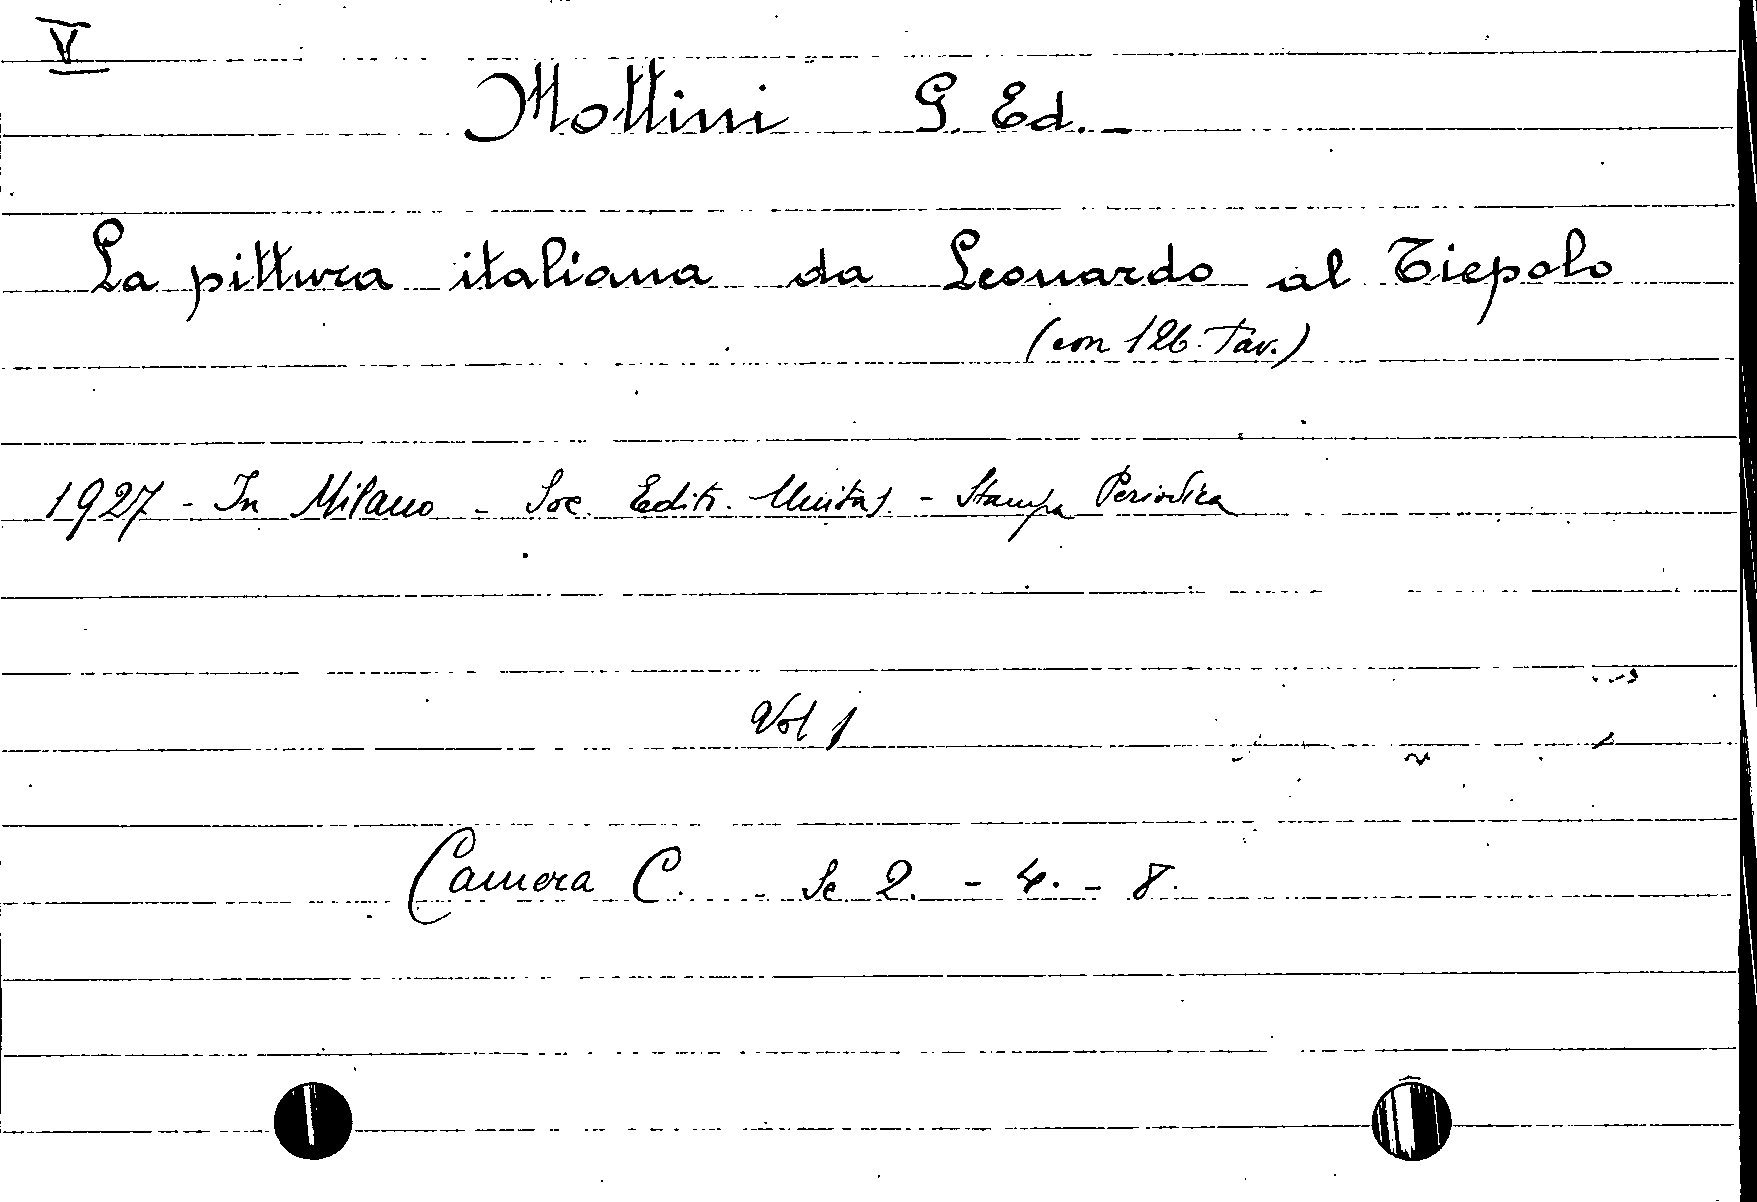 V
Mottini G. Ed. -
La pittura italiana da Leonardo al Tiepolo
(con 126 Tav.)
1927 - In Milano - Soc. Editr. Unitas - Stampa Periodica
Vol 1
Camera C. - Sc 2. - 4. - 8.